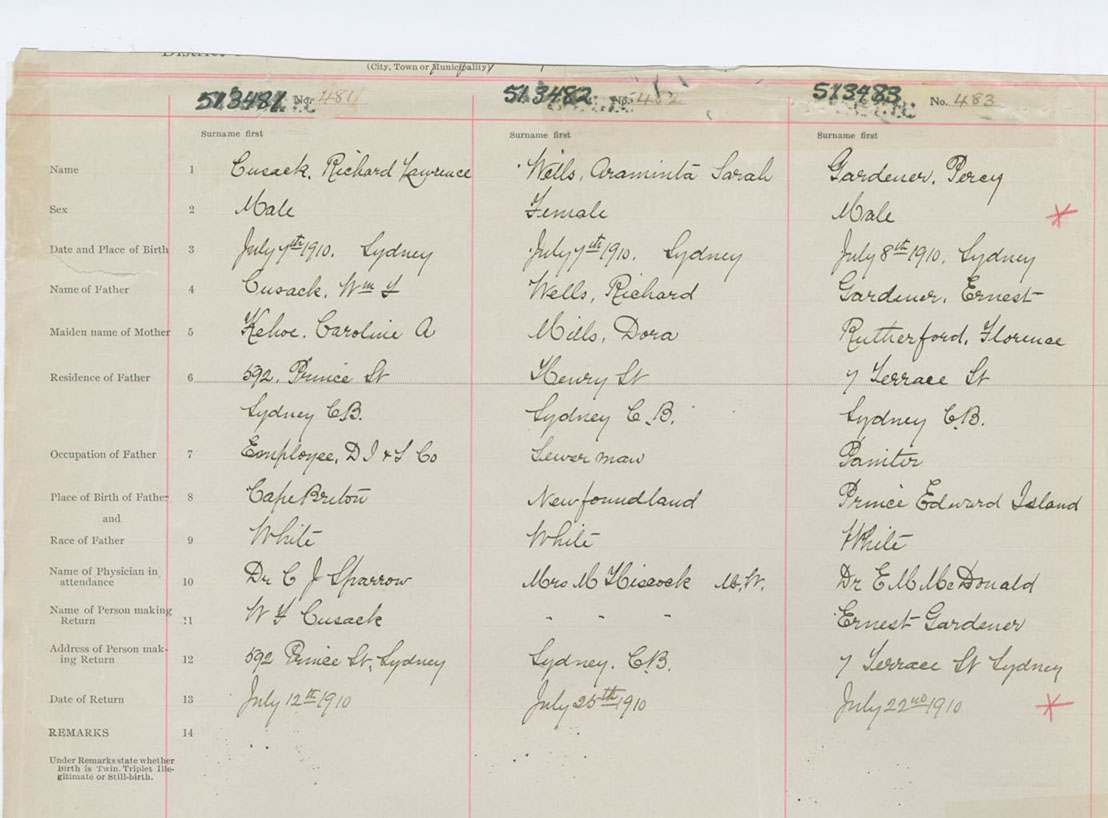 (City, Town or Municipality)
513481 No. 481 513482 No. 482 513483 No. 483
Surname first Surname first Surname first
Name 1 Cusack, Richard Lawrence Wells, Araminta Sarah Gardener, Percy
Sex 2 Male Female Male
Date and Place of Birth 3 July 7th 1910. Sydney July 7th 1910. Sydney July 8th 1910, Sydney
Name of Father 4 Cusack, Wm Wells, Richard Gardener, Ernest
Maiden name of Mother 5 Kehoe, Caroline A Mills, Dora Rutherford, Florence
Residence of Father 6 592, Prince St Henry St 7 Terrace St
Sydney C.B. Sydney C.B. Sydney C.B.
Occupation of Father 7 Employee, D I & S Co Sewer man Painter
Place of Birth of Father 8 Cape Briton Newfoundland Prince Edward Island
and
Race of Father 9 White White White
Name of Physician in
attendance 10 Dr C J Sparrow Mrs M Hiscock M.W. Dr E M McDonald
Name of Person making
Return 11 W Cusack " " " Ernest Gardener
Address of Person mak-
ing Return 12 592 Prince St, Sydney Sydney, C.B. 7 Terrace St Sydney
Date of Return 13 July 12th 1910 July 25th 1910 July 22nd 1910
REMARKS 14
Under Remarks state whether
Birth is Twin, Triplet Ille-
gitimate or Still-birth.